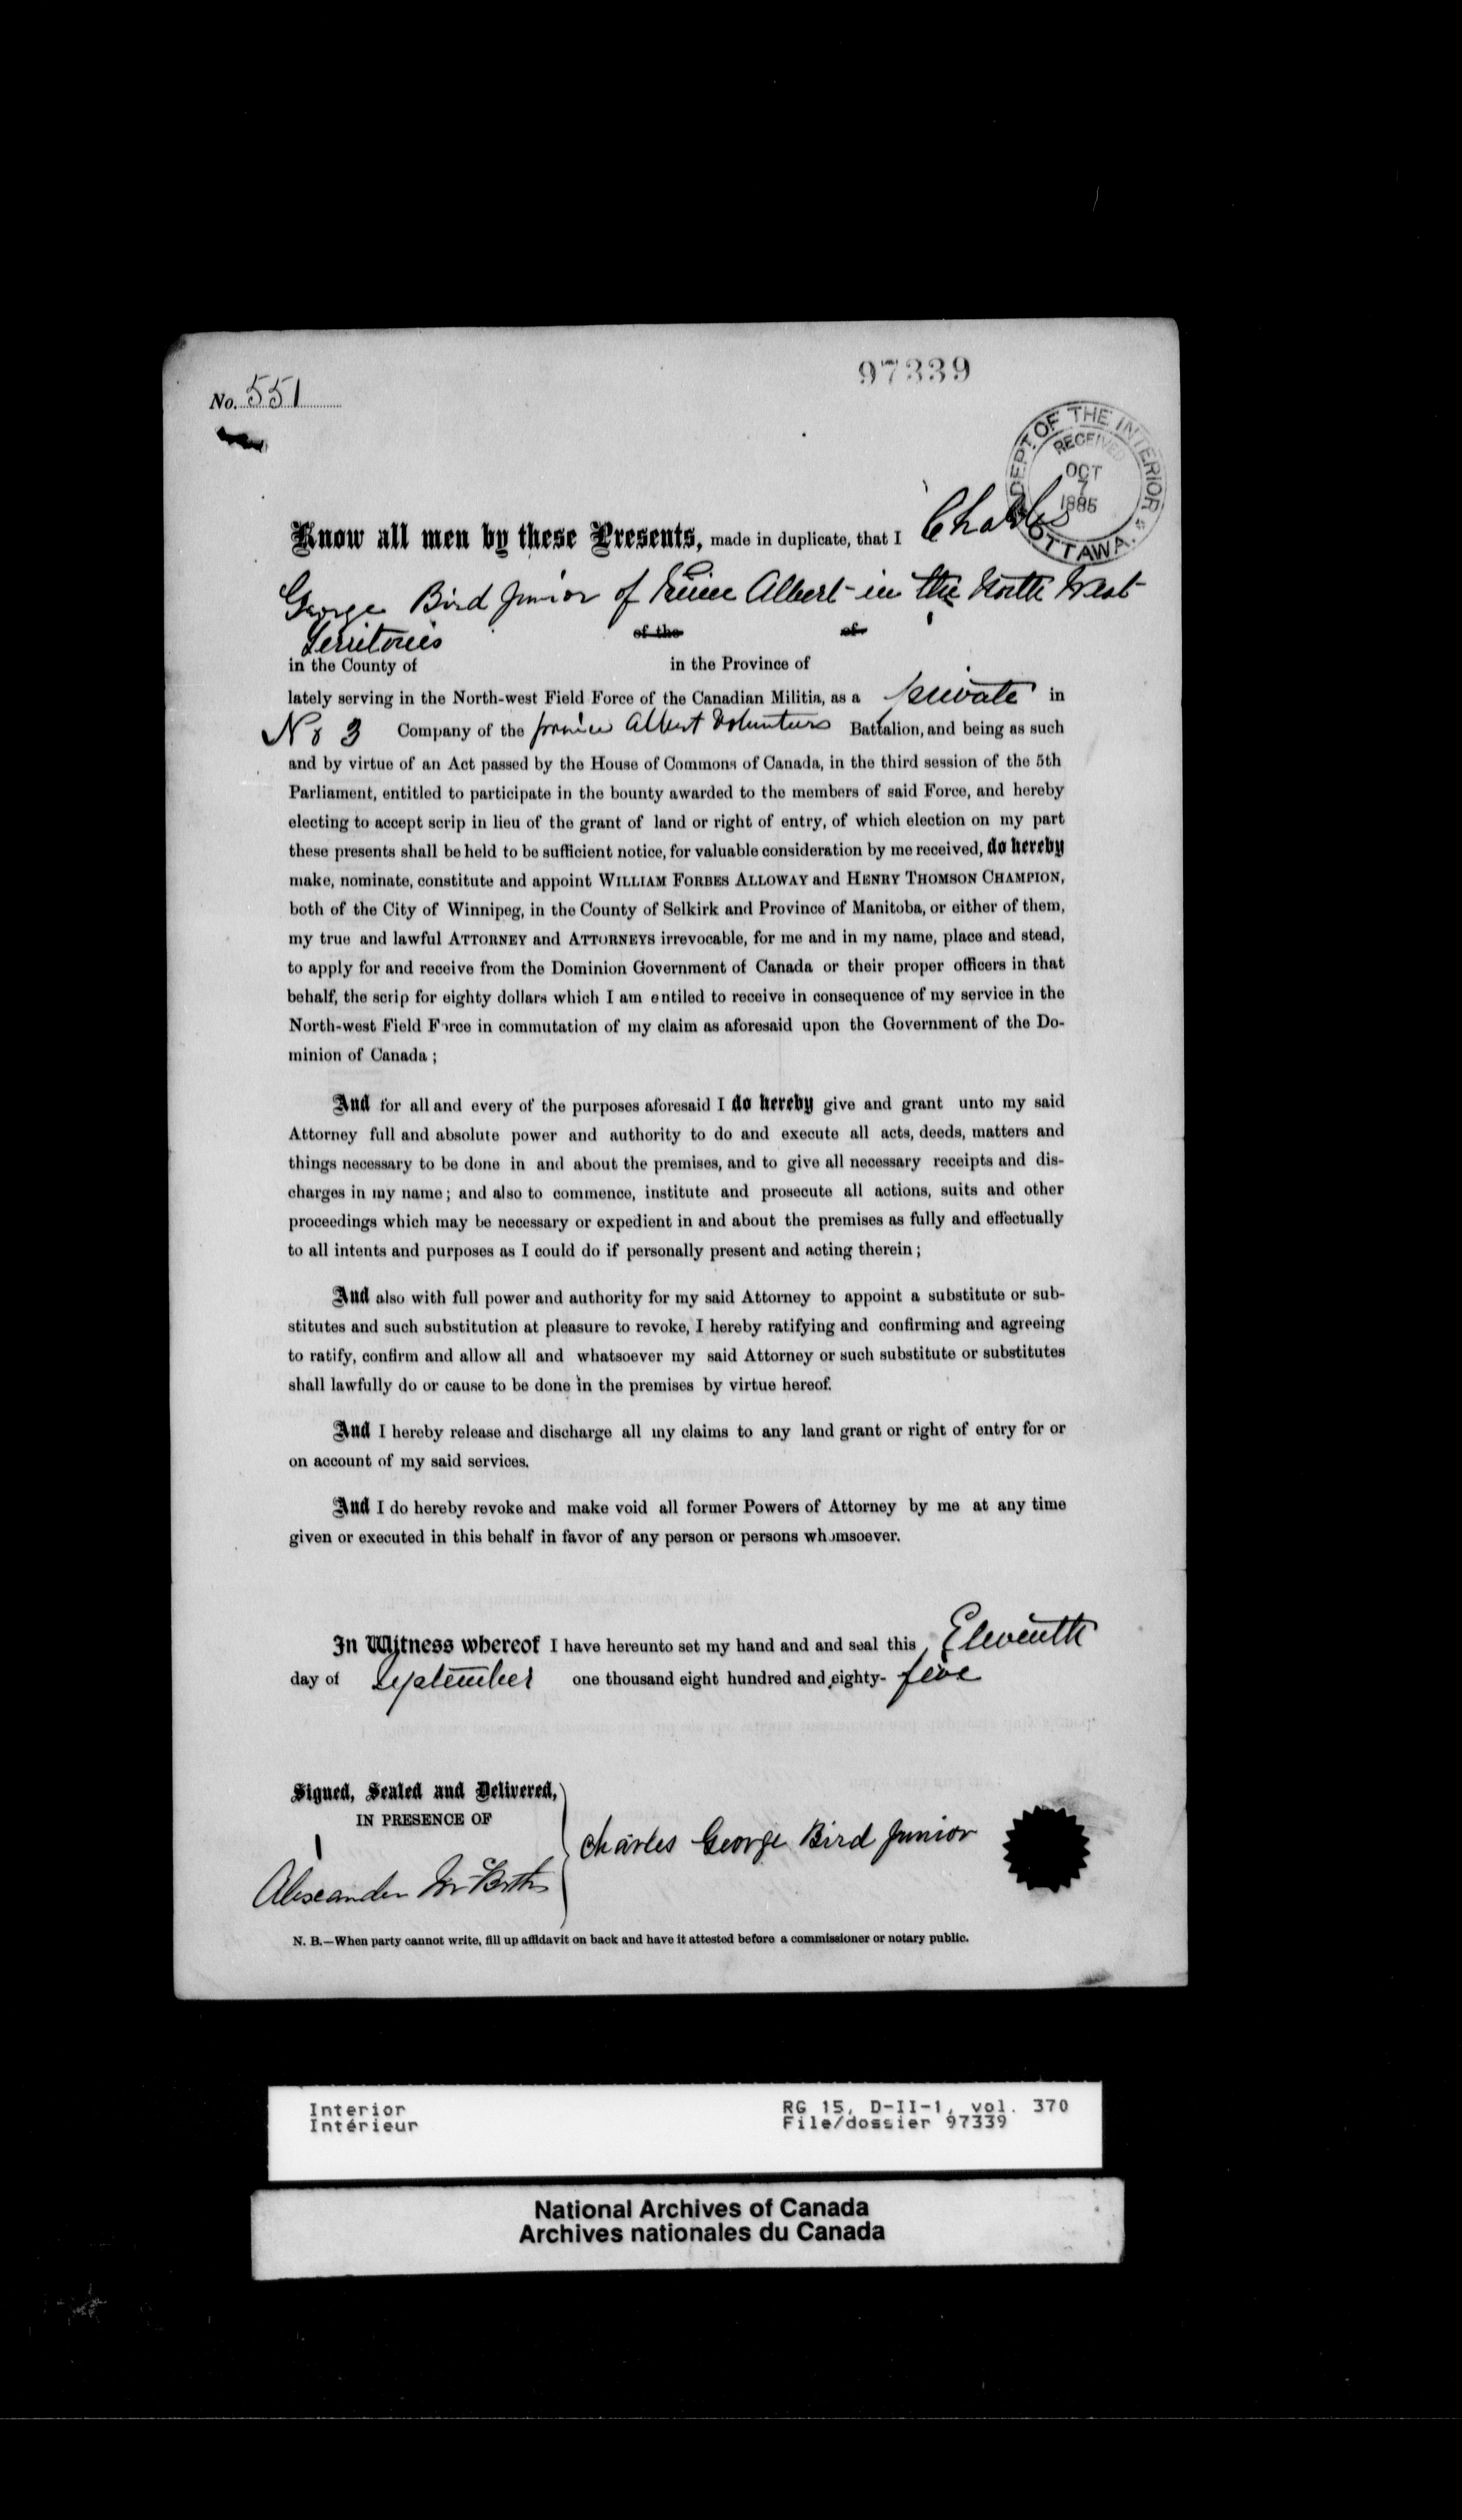 97339
No. 551
DEPT. OF THE INTERIOR
RECEIVED
OCT
7
1885
OTTAWA.
Know all men by these Presents, made in duplicate, that I Charles
George Bird Junior of Prince Albert in the North West
Territories of the of
in the County of in the Province of
lately serving in the North-west Field Force of the Canadian Militia, as a private in
No 3 Company of the prince Albert Volunteers Battalion, and being as such
and by virtue of an Act passed by the House of Commons of Canada, in the third session of the 5th
Parliament, entitled to participate in the bounty awarded to the members of said Force, and hereby
electing to accept scrip in lieu of the grant of land or right of entry, of which election on my part
these presents shall be held to be sufficient notice, for valuable consideration by me received, do hereby
make, nominate, constitute and appoint WILLIAM FORBES ALLOWAY and HENRY THOMSON CHAMPION,
both of the City of Winnipeg, in the County of Selkirk and Province of Manitoba, or either of them,
my true and lawful ATTORNEY and ATTORNEYS irrevocable, for me and in my name, place and stead,
to apply for and receive from the Dominion Government of Canada or their proper officers in that
behalf, the scrip for eighty dollars which I am entiled to receive in consequence of my service in the
North-west Field Force in commutation of my claim as aforesaid upon the Government of the Do-
minion of Canada ;
And for all and every of the purposes aforesaid I do hereby give and grant unto my said
Attorney full and absolute power and authority to do and execute all acts, deeds, matters and
things necessary to be done in and about the premises, and to give all necessary receipts and dis-
charges in my name; and also to commence, institute and prosecute all actions, suits and other
proceedings which may be necessary or expedient in and about the premises as fully and effectually
to all intents and purposes as I could do if personally present and acting therein ;
And also with full power and authority for my said Attorney to appoint a substitute or sub-
stitutes and such substitution at pleasure to revoke, I hereby ratifying and confirming and agreeing
to ratify, confirm and allow all and whatsoever my said Attorney or such substitute or substitutes
shall lawfully do or cause to be done in the premises by virtue hereof.
And I hereby release and discharge all my claims to any land grant or right of entry for or
on account of my said services.
And I do hereby revoke and make void all former Powers of Attorney by me at any time
given or executed in this behalf in favor of any person or persons whomsoever.
In Witness whereof I have hereunto set my hand and and seal this Eleventh
day of September one thousand eight hundred and eighty- five
Signed, Sealed and Delivered,
IN PRESENCE OF
Charles George Bird Junior
Alexander
N. B.—When party cannot write, fill up affidavit on back and have it attested before a commissioner or notary public.
Interior RG 15, D-II-1, vol. 370
Intérieur File/dossier 97339
National Archives of Canada
Archives nationales du Canada